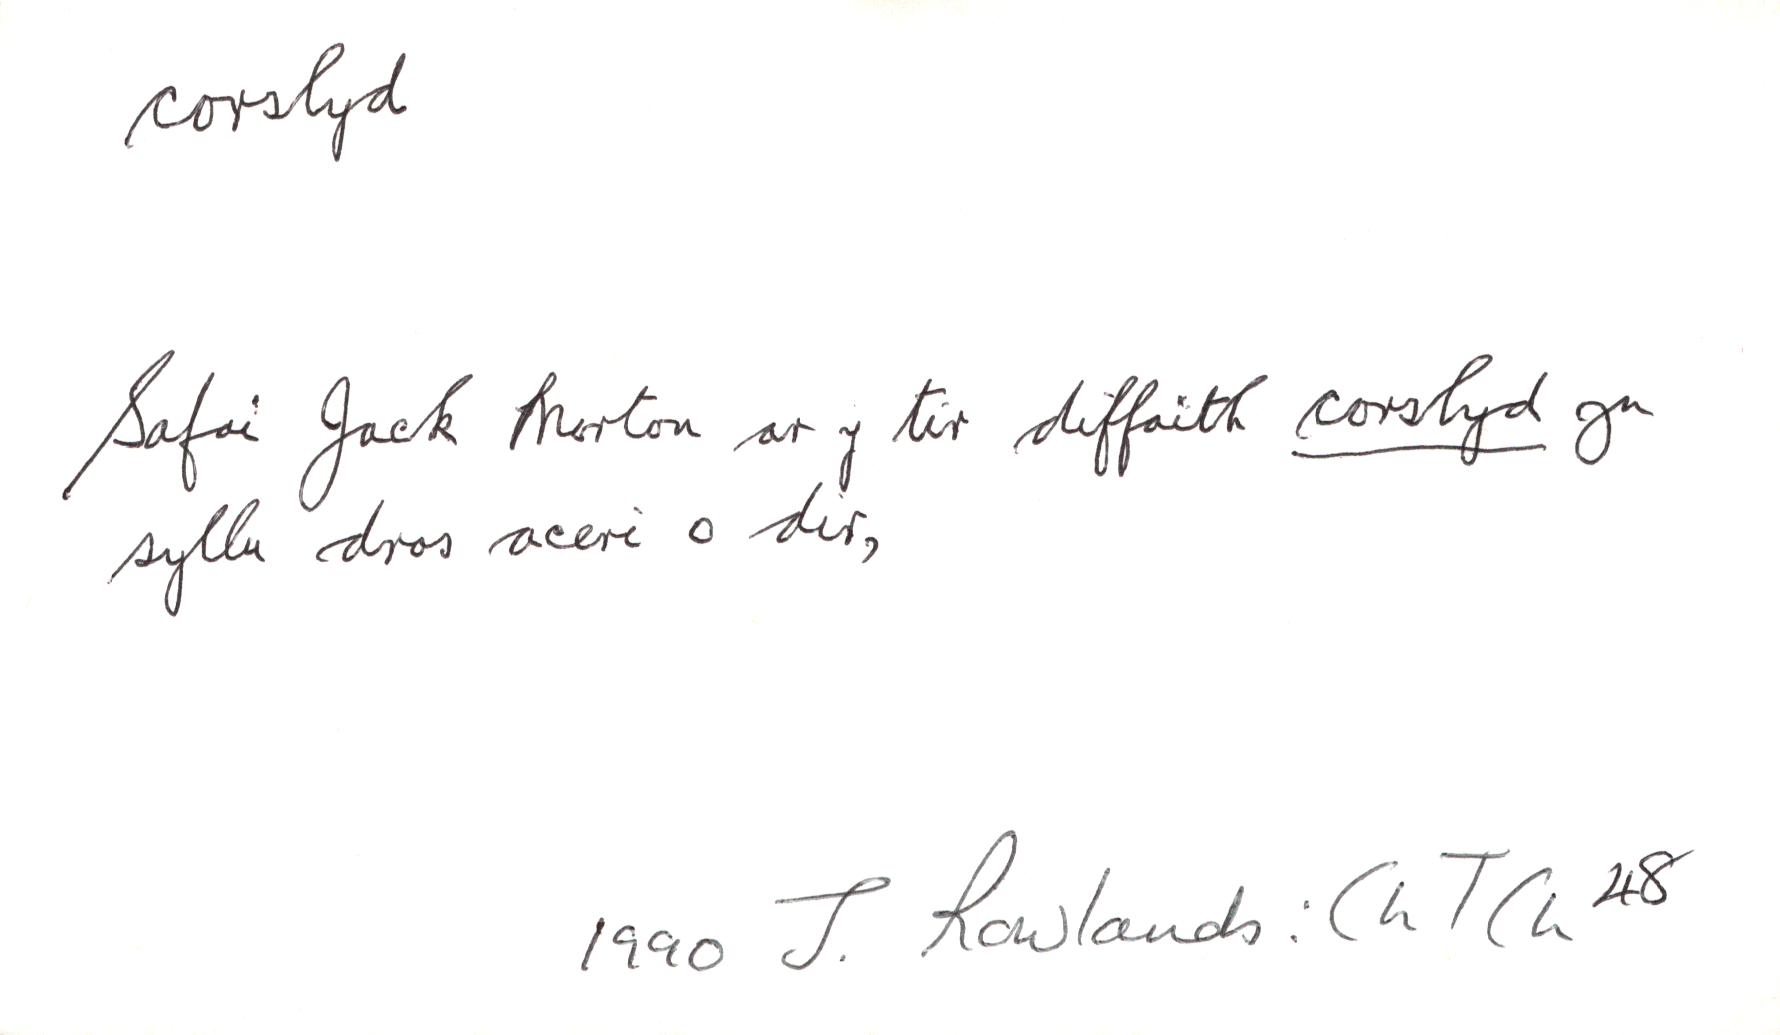 corslyd
Safai Jack Morton ar y tir diffaith corslyd yn
syllu dros aceri o dir,
1990 J. Rowlands: Ch T Ch 48